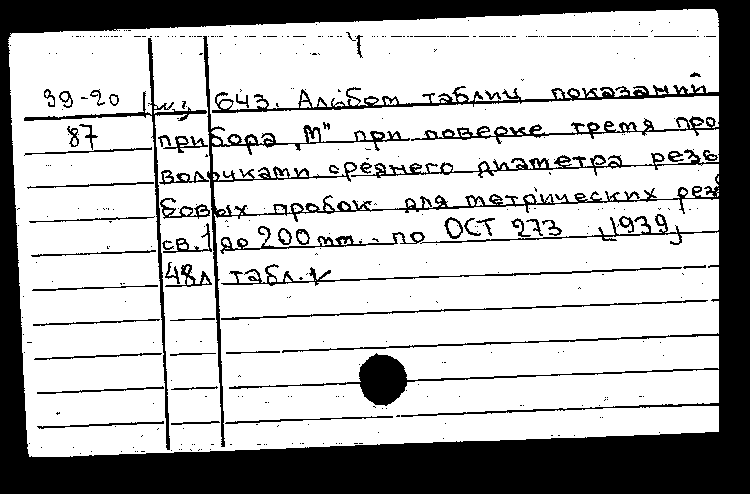 4
39-20 643. Альбом таблиц показаний
87 прибора „М" при поверке тремя про-
волочками среднего диаметра резь-
бовых пробок для метрических резь
св. 1 до 200 mm. по ОСТ 273 [1939]
48л табл.